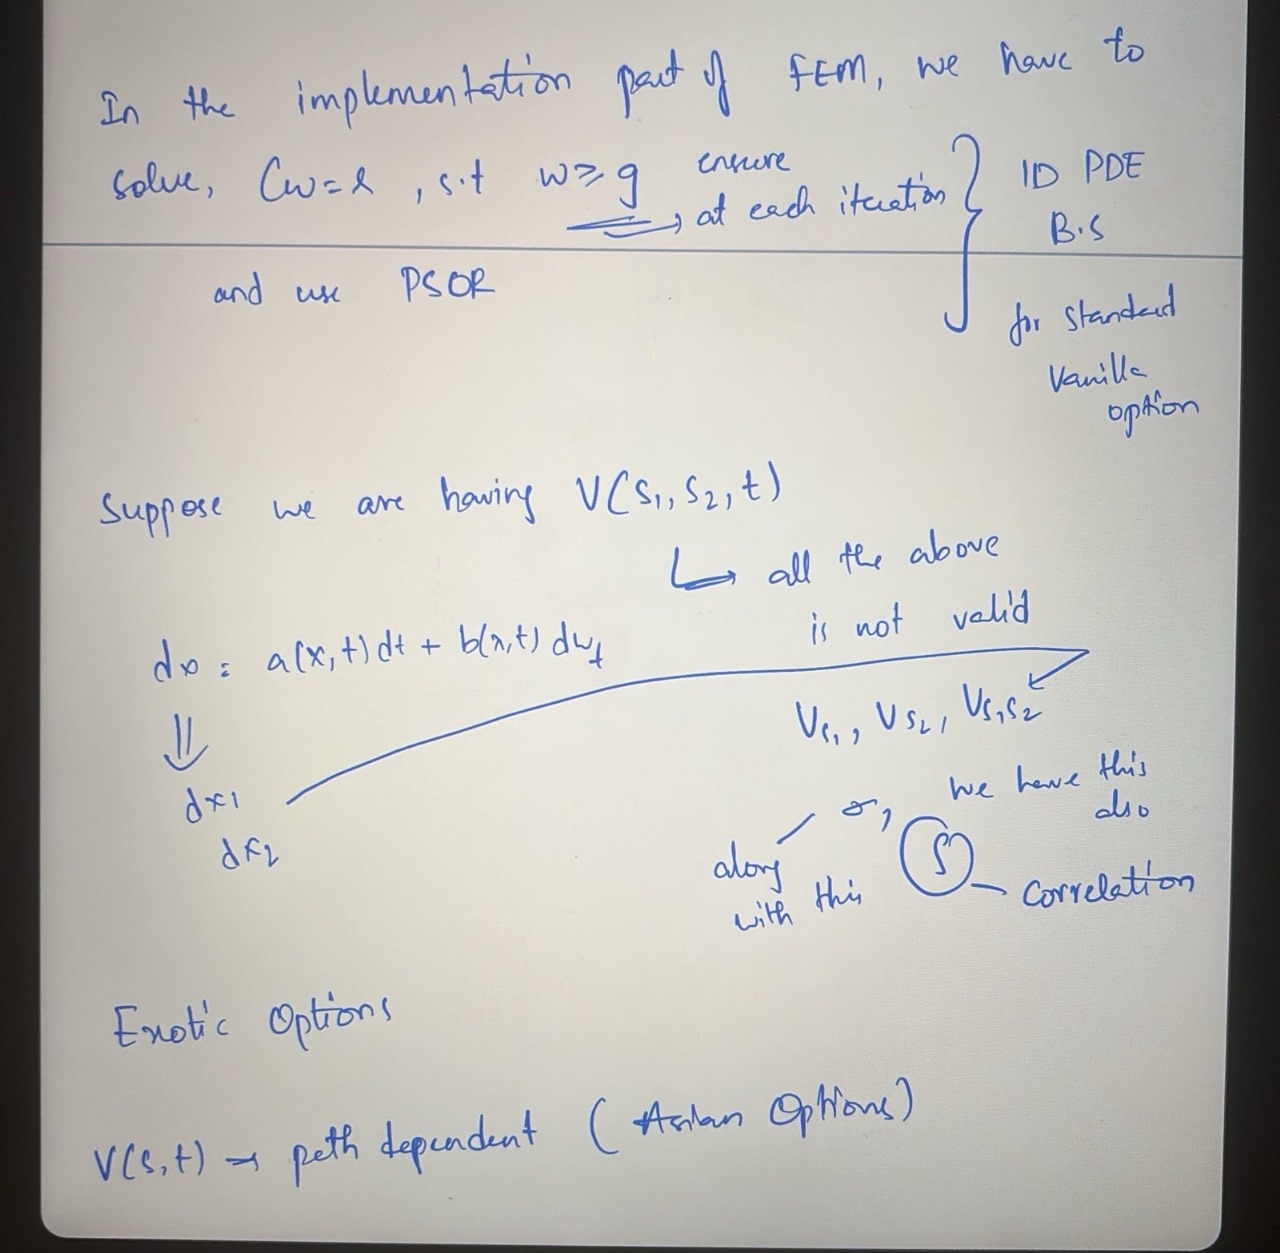 In the implementation part of FEM, we have to
solve, Cw=r, s.t w≥g ensure at each iteration
and use PSOR
1D PDE
B.S
for standard
Vanilla
option
Suppose we are having V(S1, S2, t)
all the above
is not valid
dx = a(x,t)dt + b(x,t) dwt
dx1
dx2
VS1, VS2, VS1S2
we have this
also
σ, ρ
along
with this
Correlation
Exotic Options
V(S,t) → path dependent (Asian Options)